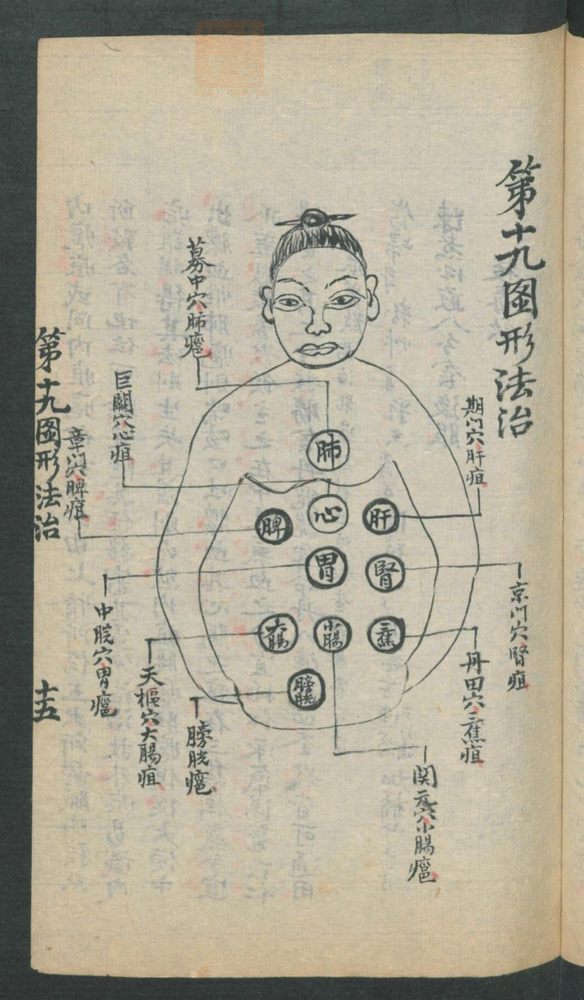 第十九图形法治
期门穴肝疽
京门穴腎疽
丹田穴三蕉疽
関元穴小腸癰
募中穴肺癰
巨闕穴心疽
章门穴脾疽
中脘穴胃癰
天樞穴大腸疽
膀胱癰
肺
心
肝
脾
胃
腎
大腸
小腸
三蕉
膀胱
第十九图形法治
十五